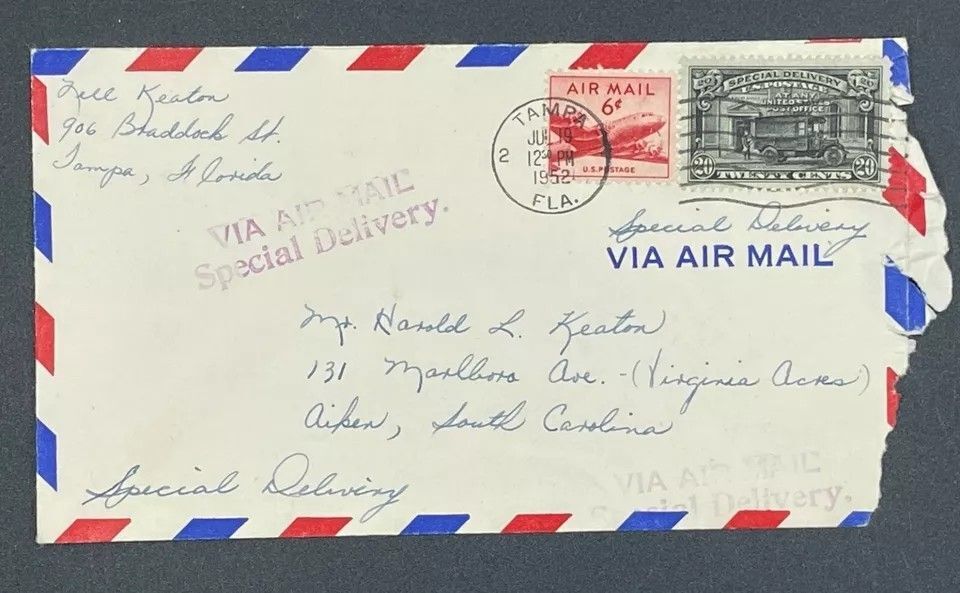 Keaton
906 Braddock St.
Tampa, Florida
VIA AIR MAIL
Special Delivery.
TAMPA
JUL 19
12 30 PM
1952
FLA.
2
AIR MAIL
6¢
U.S. POSTAGE
20 SPECIAL DELIVERY 20
U.S. POSTAGE
AT ANY
UNITED STATES
POST OFFICE
20 TWENTY CENTS 20
Special Delivery
VIA AIR MAIL
Mr. Harold L. Keaton
131 Marlboro Ave. - (Virginia Acres)
Aiken, South Carolina
Special Delivery
VIA AIR MAIL
Special Delivery.